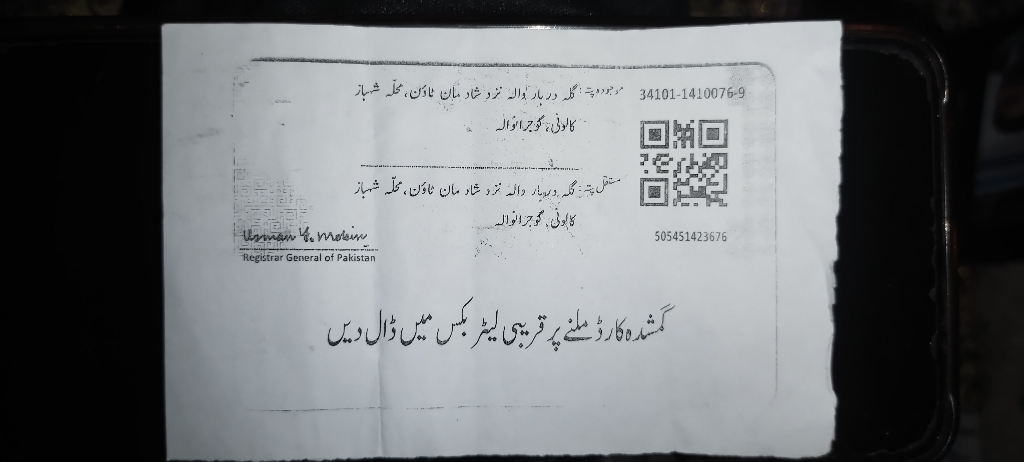 34101-1410076-9
موجودہ پتہ: گلہ دربار والہ نزد شاد مان ٹاؤن، محلّہ شہباز
کالونی، گوجرانوالہ
مستقل پتہ: گلہ دربار والہ نزد شاد مان ٹاؤن، محلّہ شہباز
کالونی، گوجرانوالہ
505451423676
Usman Y. Mobin
Registrar General of Pakistan
گمشدہ کارڈ ملنے پر قریبی لیٹر بکس میں ڈال دیں